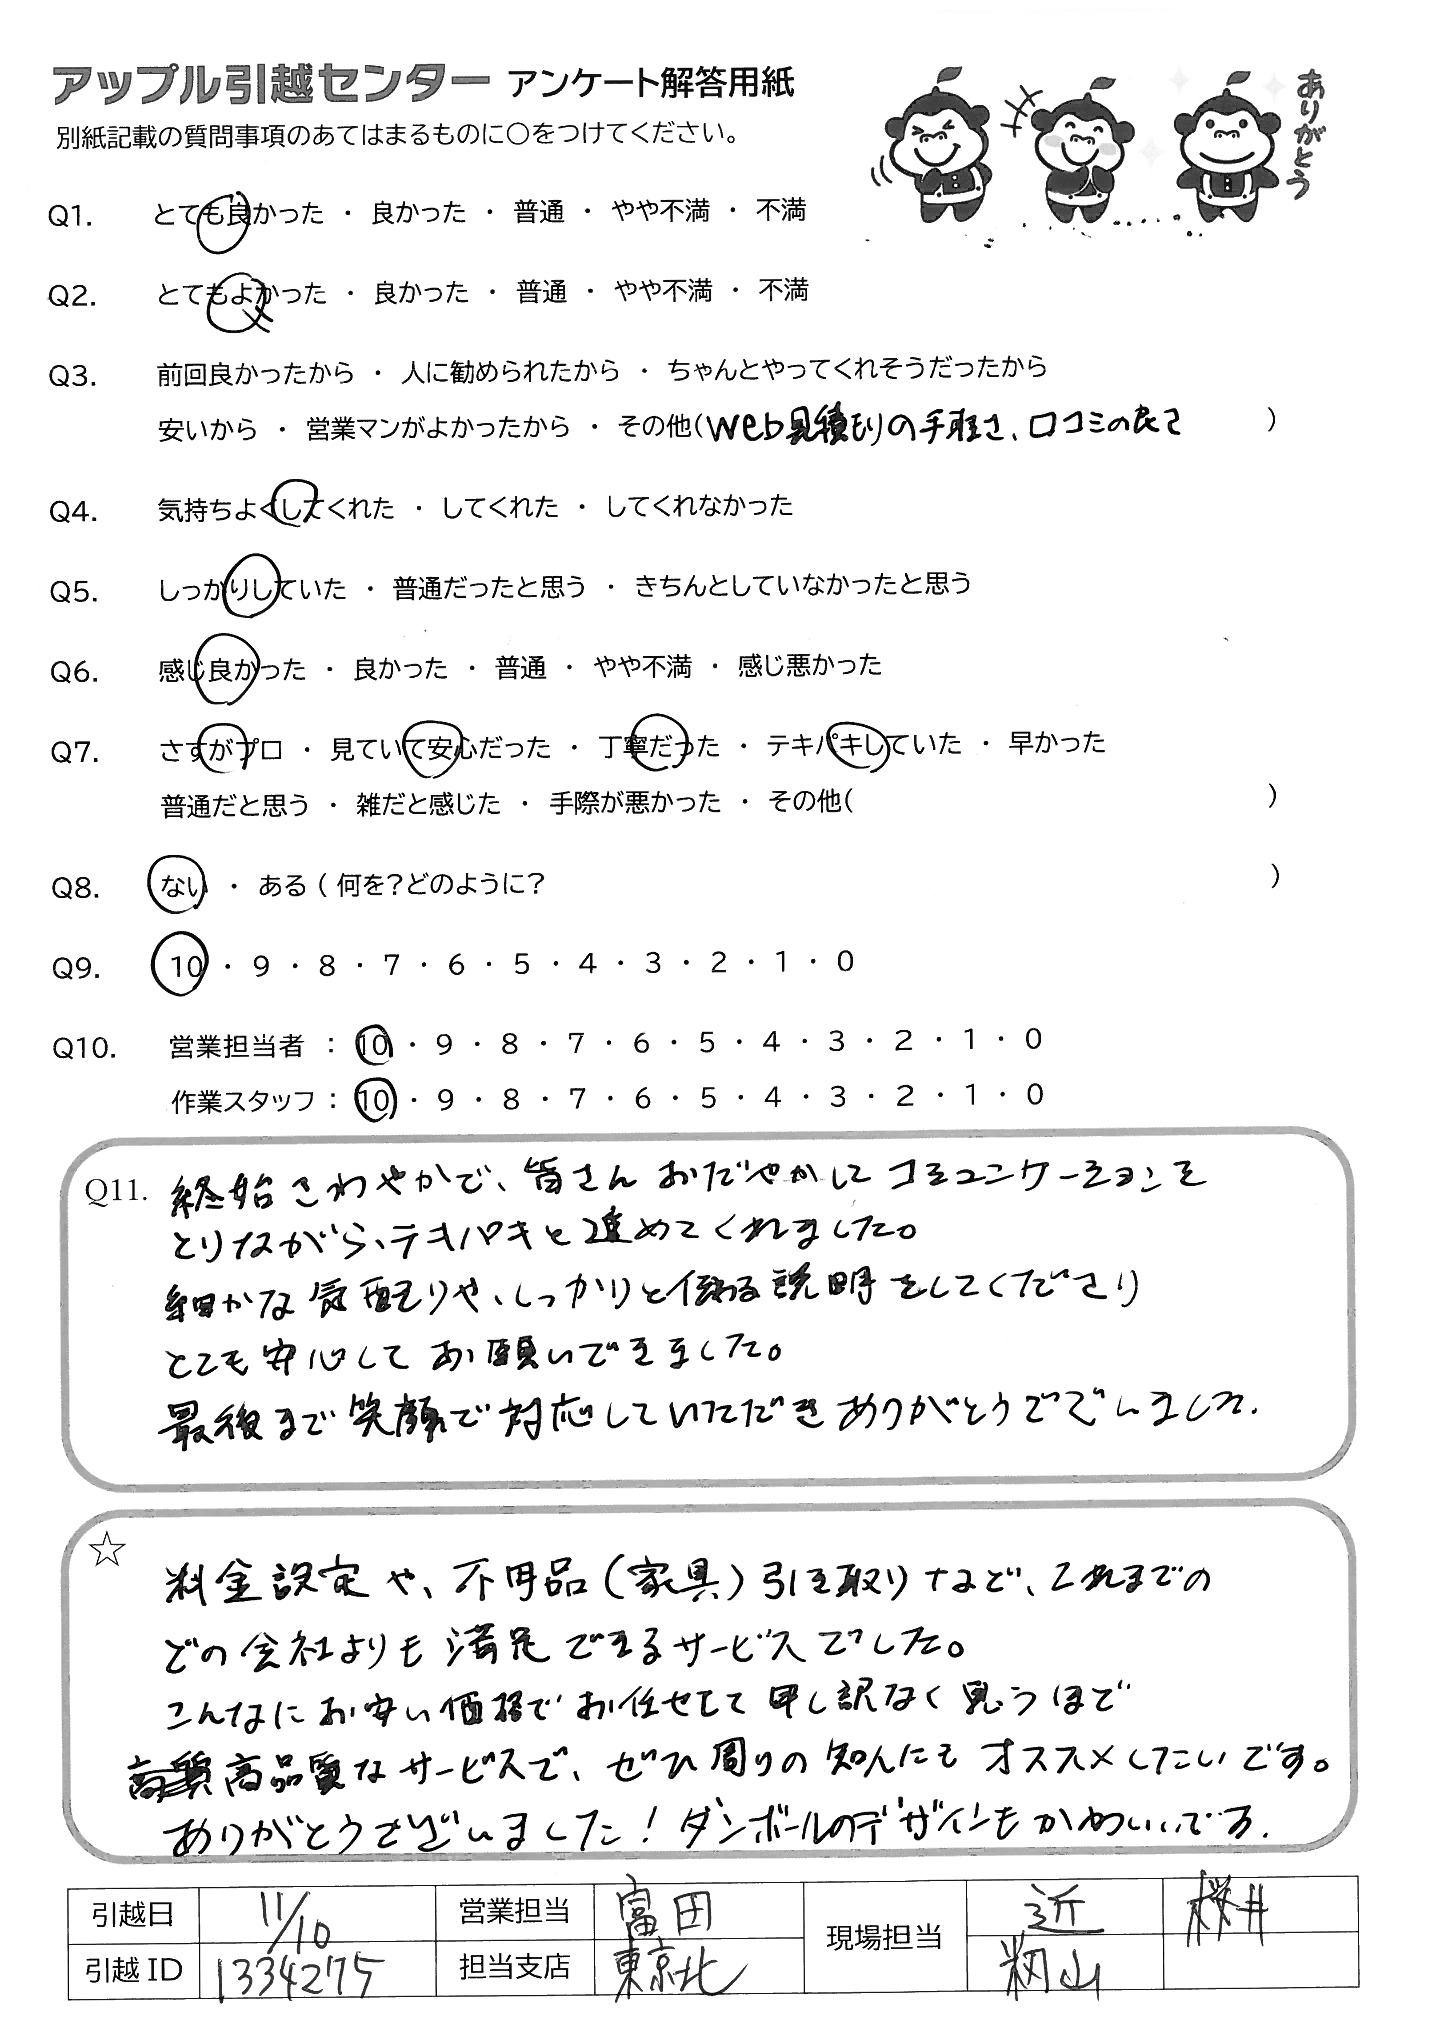 アップル引越センター アンケート解答用紙
ありがとう
別紙記載の質問事項のあてはまるものに○をつけてください。
Q1. とても良かった ・ 良かった ・ 普通 ・ やや不満 ・ 不満
Q2. とてもよかった ・ 良かった ・ 普通 ・ やや不満 ・ 不満
Q3. 前回良かったから ・ 人に勧められたから ・ ちゃんとやってくれそうだったから
安いから ・ 営業マンがよかったから ・ その他(Web見積もりの手軽さ、口コミの良さ )
Q4. 気持ちよくしてくれた ・ してくれた ・ してくれなかった
Q5. しっかりしていた ・ 普通だったと思う ・ きちんとしていなかったと思う
Q6. 感じ良かった ・ 良かった ・ 普通 ・ やや不満 ・ 感じ悪かった
Q7. さすがプロ ・ 見ていて安心だった ・ 丁寧だった ・ テキパキしていた ・ 早かった
普通だと思う ・ 雑だと感じた ・ 手際が悪かった ・ その他( )
Q8. ない ・ ある ( 何を?どのように? )
Q9. 10 ・ 9 ・ 8 ・ 7 ・ 6 ・ 5 ・ 4 ・ 3 ・ 2 ・ 1 ・ 0
Q10. 営業担当者 : 10 ・ 9 ・ 8 ・ 7 ・ 6 ・ 5 ・ 4 ・ 3 ・ 2 ・ 1 ・ 0
作業スタッフ : 10 ・ 9 ・ 8 ・ 7 ・ 6 ・ 5 ・ 4 ・ 3 ・ 2 ・ 1 ・ 0
Q11. 終始さわやかで、皆さんおだやかにコミュニケーションを
とりながら、テキパキと進めてくれました。
細かな気配りや、しっかりと伝わる説明をしてくださり
とても安心してお願いできました。
最後まで笑顔で対応していただきありがとうございました.
☆ 料金設定や、不用品(家具)引き取りなど、これまでの
どの会社よりも満足できるサービスでした。
こんなにお安い価格でお任せして申し訳なく思うほど
高品質なサービスで、ぜひ周りの知人にもオススメしたいです。
ありがとうございました! ダンボールのデザインもかわいいです.
引越日 11/10 営業担当 富田 現場担当 近 桜井
引越ID 1334275 担当支店 東京北 籾山